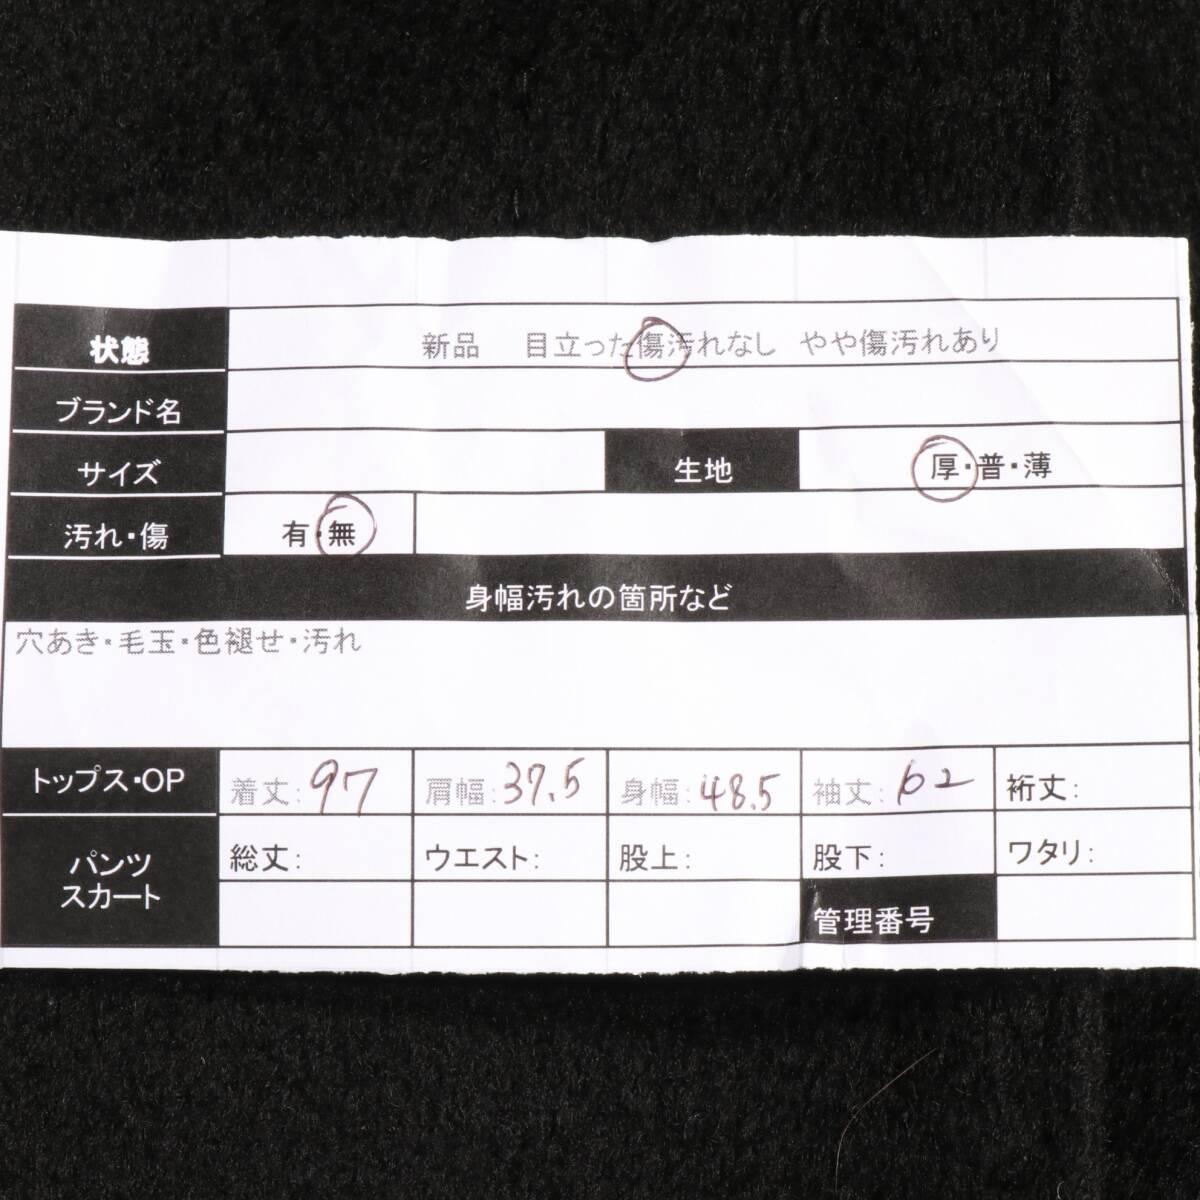 状態 新品 目立った傷汚れなし やや傷汚れあり
ブランド名
サイズ 生地 厚・普・薄
汚れ・傷 有・無
身幅汚れの箇所など
穴あき・毛玉・色褪せ・汚れ
トップス・OP 着丈: 97 肩幅: 37.5 身幅: 48.5 袖丈: 62 裄丈:
パンツ 総丈: ウエスト: 股上: 股下: ワタリ:
スカート
管理番号